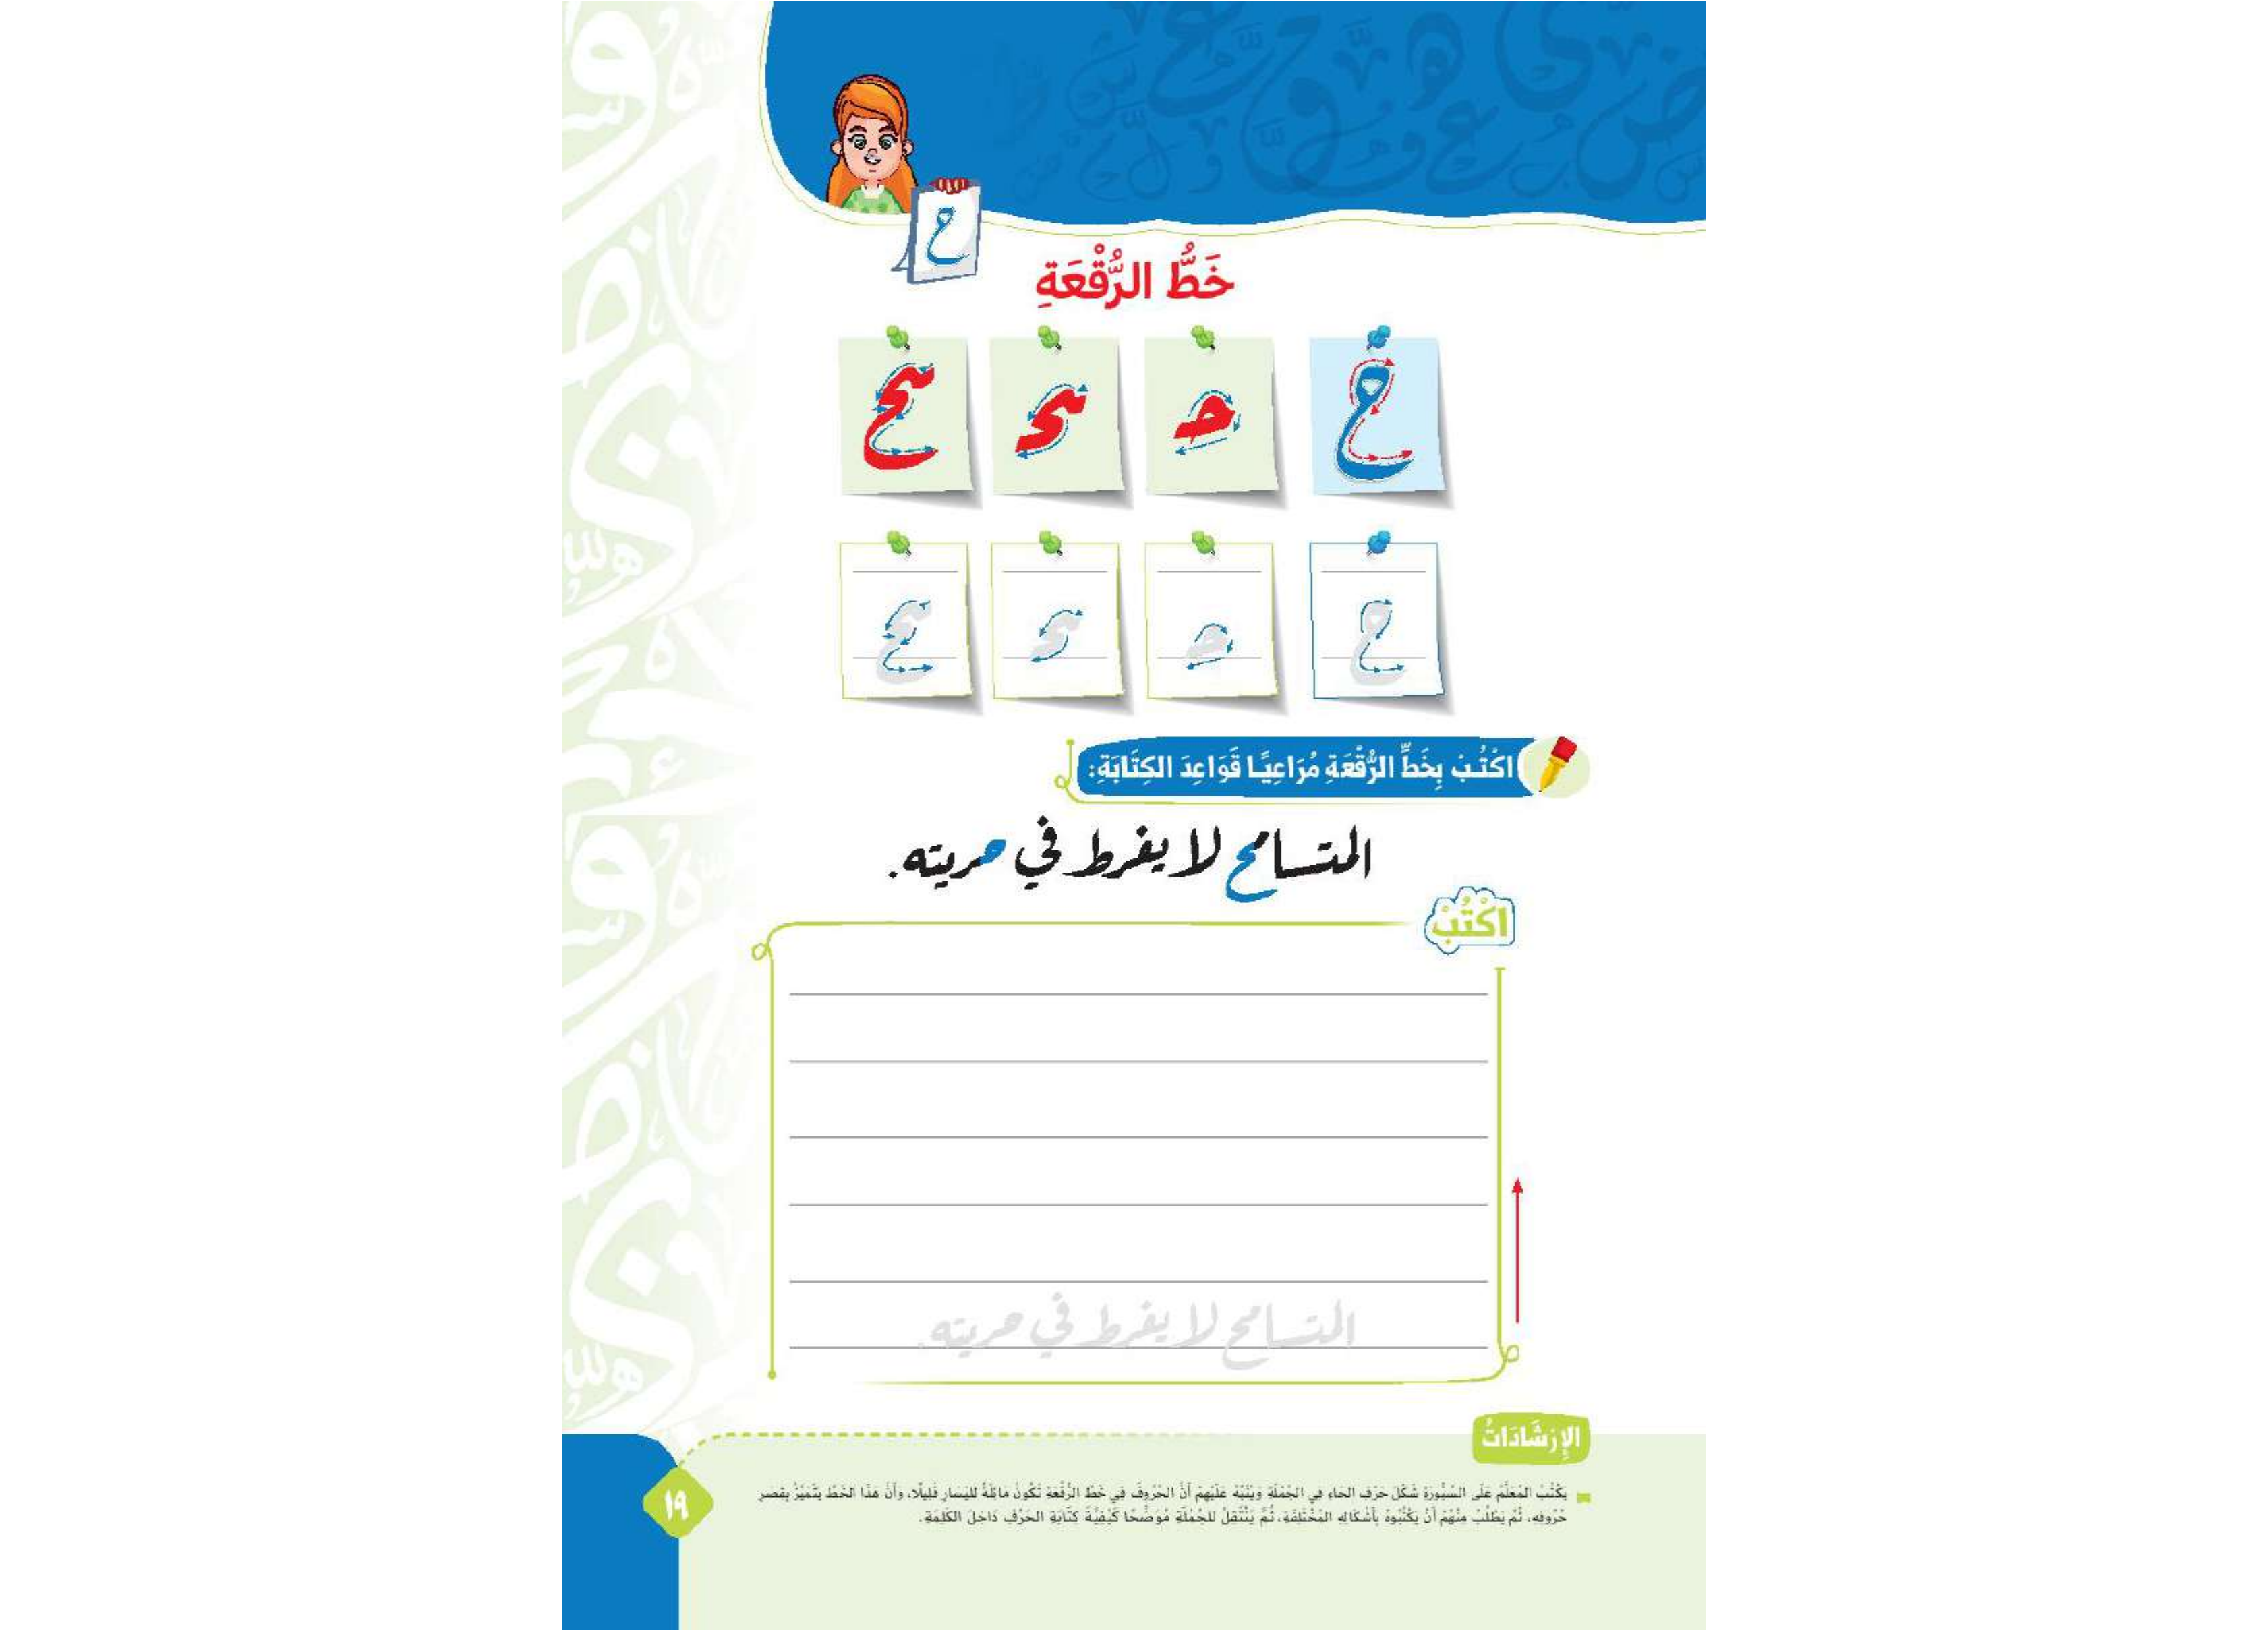 ح
خَطُّ الرُّقْعَةِ
ح حـ ـحـ ـح
ح حـ ـحـ ـح
اكْتُبْ بِخَطِّ الرُّقْعَةِ مُرَاعِيًا قَوَاعِدَ الكِتَابَةِ:
المتسامح لا يفرط في حريته.
اكْتُبْ
المتسامح لا يفرط في حريته.
الإِرْشَادَاتُ
يَكْتُبُ المُعَلِّمُ عَلَى السَّبُّورَةِ شَكْلَ حَرْفِ الحَاءِ فِي الجُمْلَةِ وَيُنَبِّهُ عَلَيْهِمْ أَنَّ الحُرُوفَ فِي خَطِّ الرُّقْعَةِ تَكُونُ مَائِلَةً لليَسَارِ قَلِيلًا، وَأَنَّ هَذَا الخَطَّ يَتَمَيَّزُ بِقِصَرِ
حُرُوفِهِ، ثُمَّ يَطْلُبُ مِنْهُمْ أَنْ يَكْتُبُوهُ بِأَشْكَالِهِ المُخْتَلِفَةِ، ثُمَّ يَنْتَقِلُ للجُمْلَةِ مُوَضِّحًا كَيْفِيَّةَ كِتَابَةِ الحَرْفِ دَاخِلَ الكَلِمَةِ.
١٩